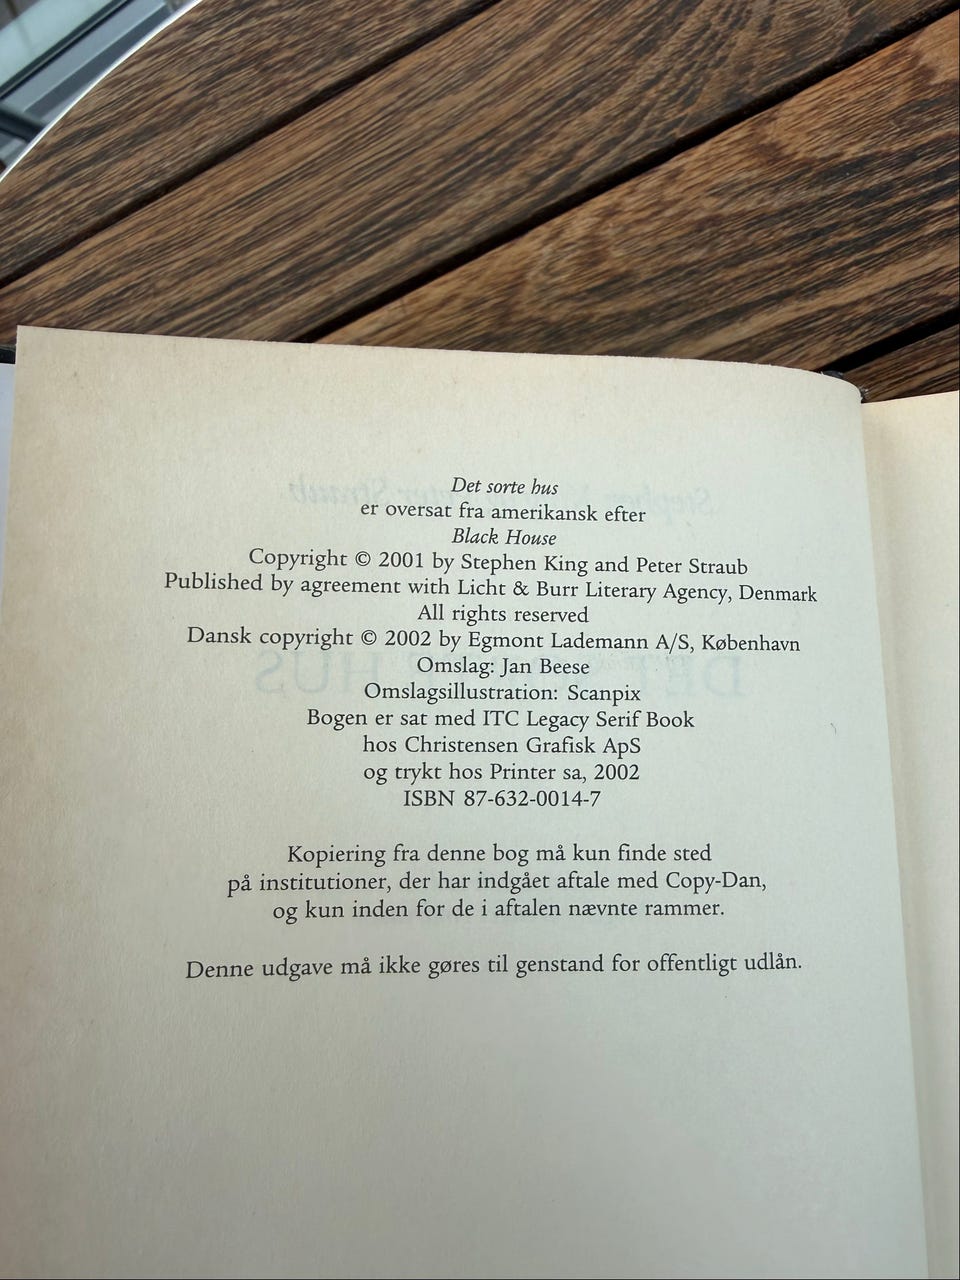 Det sorte hus
er oversat fra amerikansk efter
Black House
Copyright © 2001 by Stephen King and Peter Straub
Published by agreement with Licht & Burr Literary Agency, Denmark
All rights reserved
Dansk copyright © 2002 by Egmont Lademann A/S, København
Omslag: Jan Beese
Omslagsillustration: Scanpix
Bogen er sat med ITC Legacy Serif Book
hos Christensen Grafisk ApS
og trykt hos Printer sa, 2002
ISBN 87-632-0014-7
Kopiering fra denne bog må kun finde sted
på institutioner, der har indgået aftale med Copy-Dan,
og kun inden for de i aftalen nævnte rammer.
Denne udgave må ikke gøres til genstand for offentligt udlån.